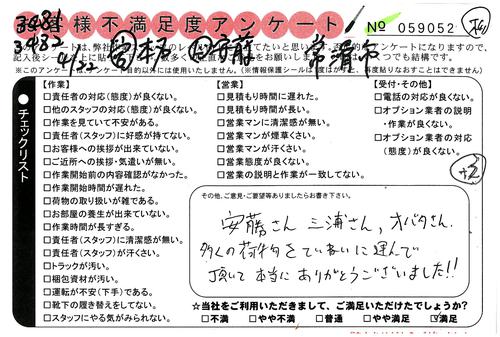 お客様不満足度アンケート
No 059052
3481
3483
4/22
常滑市
【作業】
□責任者の対応(態度)が良くない。
□他のスタッフの対応(態度)が良くない。
□作業を見ていて不安がある。
□責任者(スタッフ)に好感が持てない。
□お客様への挨拶が出来ていない。
□ご近所への挨拶・気遣いが無い。
□作業開始前の内容確認がなかった。
□作業開始時間が遅れた。
□荷物の取り扱いが雑である。
□お部屋の養生が出来ていない。
□作業時間が長すぎる。
□責任者(スタッフ)に清潔感が無い。
□責任者(スタッフ)が汗くさい。
□トラックが汚い。
□梱包資材が汚い。
□運転が不安(下手)である。
□靴下の履き替えをしてない。
□スタッフにやる気がみられない。
【営業】
□見積もり時間に遅れた。
□見積もり時間が長い。
□営業マンに清潔感が無い。
□営業マンが煙草くさい。
□営業マンが汗くさい。
□営業態度が良くない。
□営業の説明と作業が一致してない。
【受付・その他】
□電話の対応が良くない。
□オプション業者の説明
・作業が良くない。
□オプション業者の対応
(態度)が良くない。
+2
●チェックリスト
その他、ご意見・ご要望等ありましたらお書き下さい。
安藤さん 三浦さん、オバタさん.
多くの荷物をていねいに運んで
頂いて本当にありがとうございました!!
☆当社をご利用いただきまして、ご満足いただけたでしょうか?
□不満 □やや不満 □普通 □やや満足 ☑満足